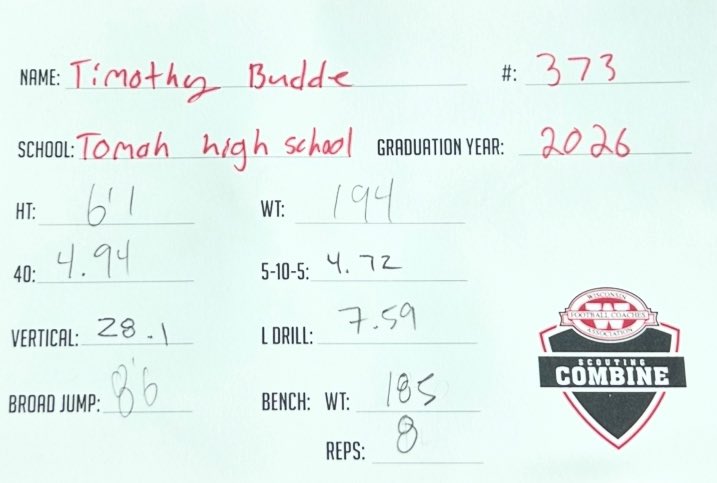 NAME: Timothy Budde #: 373
SCHOOL: Tomah high school GRADUATION YEAR: 2026
HT: 6'1 WT: 194
40: 4.94 5-10-5: 4.72
VERTICAL: 28.1 L DRILL: 7.59
BROAD JUMP: 8'6 BENCH: WT: 185
REPS: 8
WISCONSIN
FOOTBALL COACHES
ASSOCIATION
SCOUTING
COMBINE